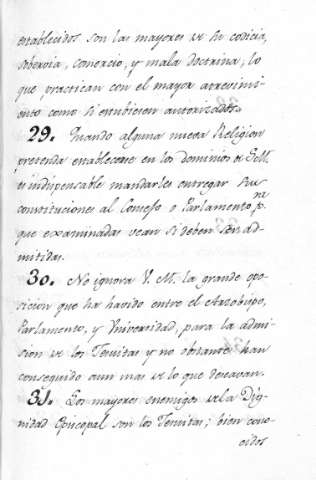 establecidos son las mayores de la codicia,
soberbia, comercio, y mala doctrina; lo
que practican con el mayor atrevimi-
ento como si estubiesen autorizados.
29. Quando alguna nueva Religion
pretenda establecerse en los dominios de
es indispensable mandarles entregar sus
constituciones al Consejo o Parlamento, pª
que examinadas vean si deben ser ad-
mitidas.
30. No ignora V. M. la grande opo-
sicion que ha havido entre el Arzobispo,
Parlamento, y Vniversidad, para la admi-
sion de los Jesuitas y no obstante han
conseguido aun mas de lo que deseavan.
31. Los mayores enemigos de la Dig-
nidad Episcopal son los Jesuitas; bien cono-
cidos